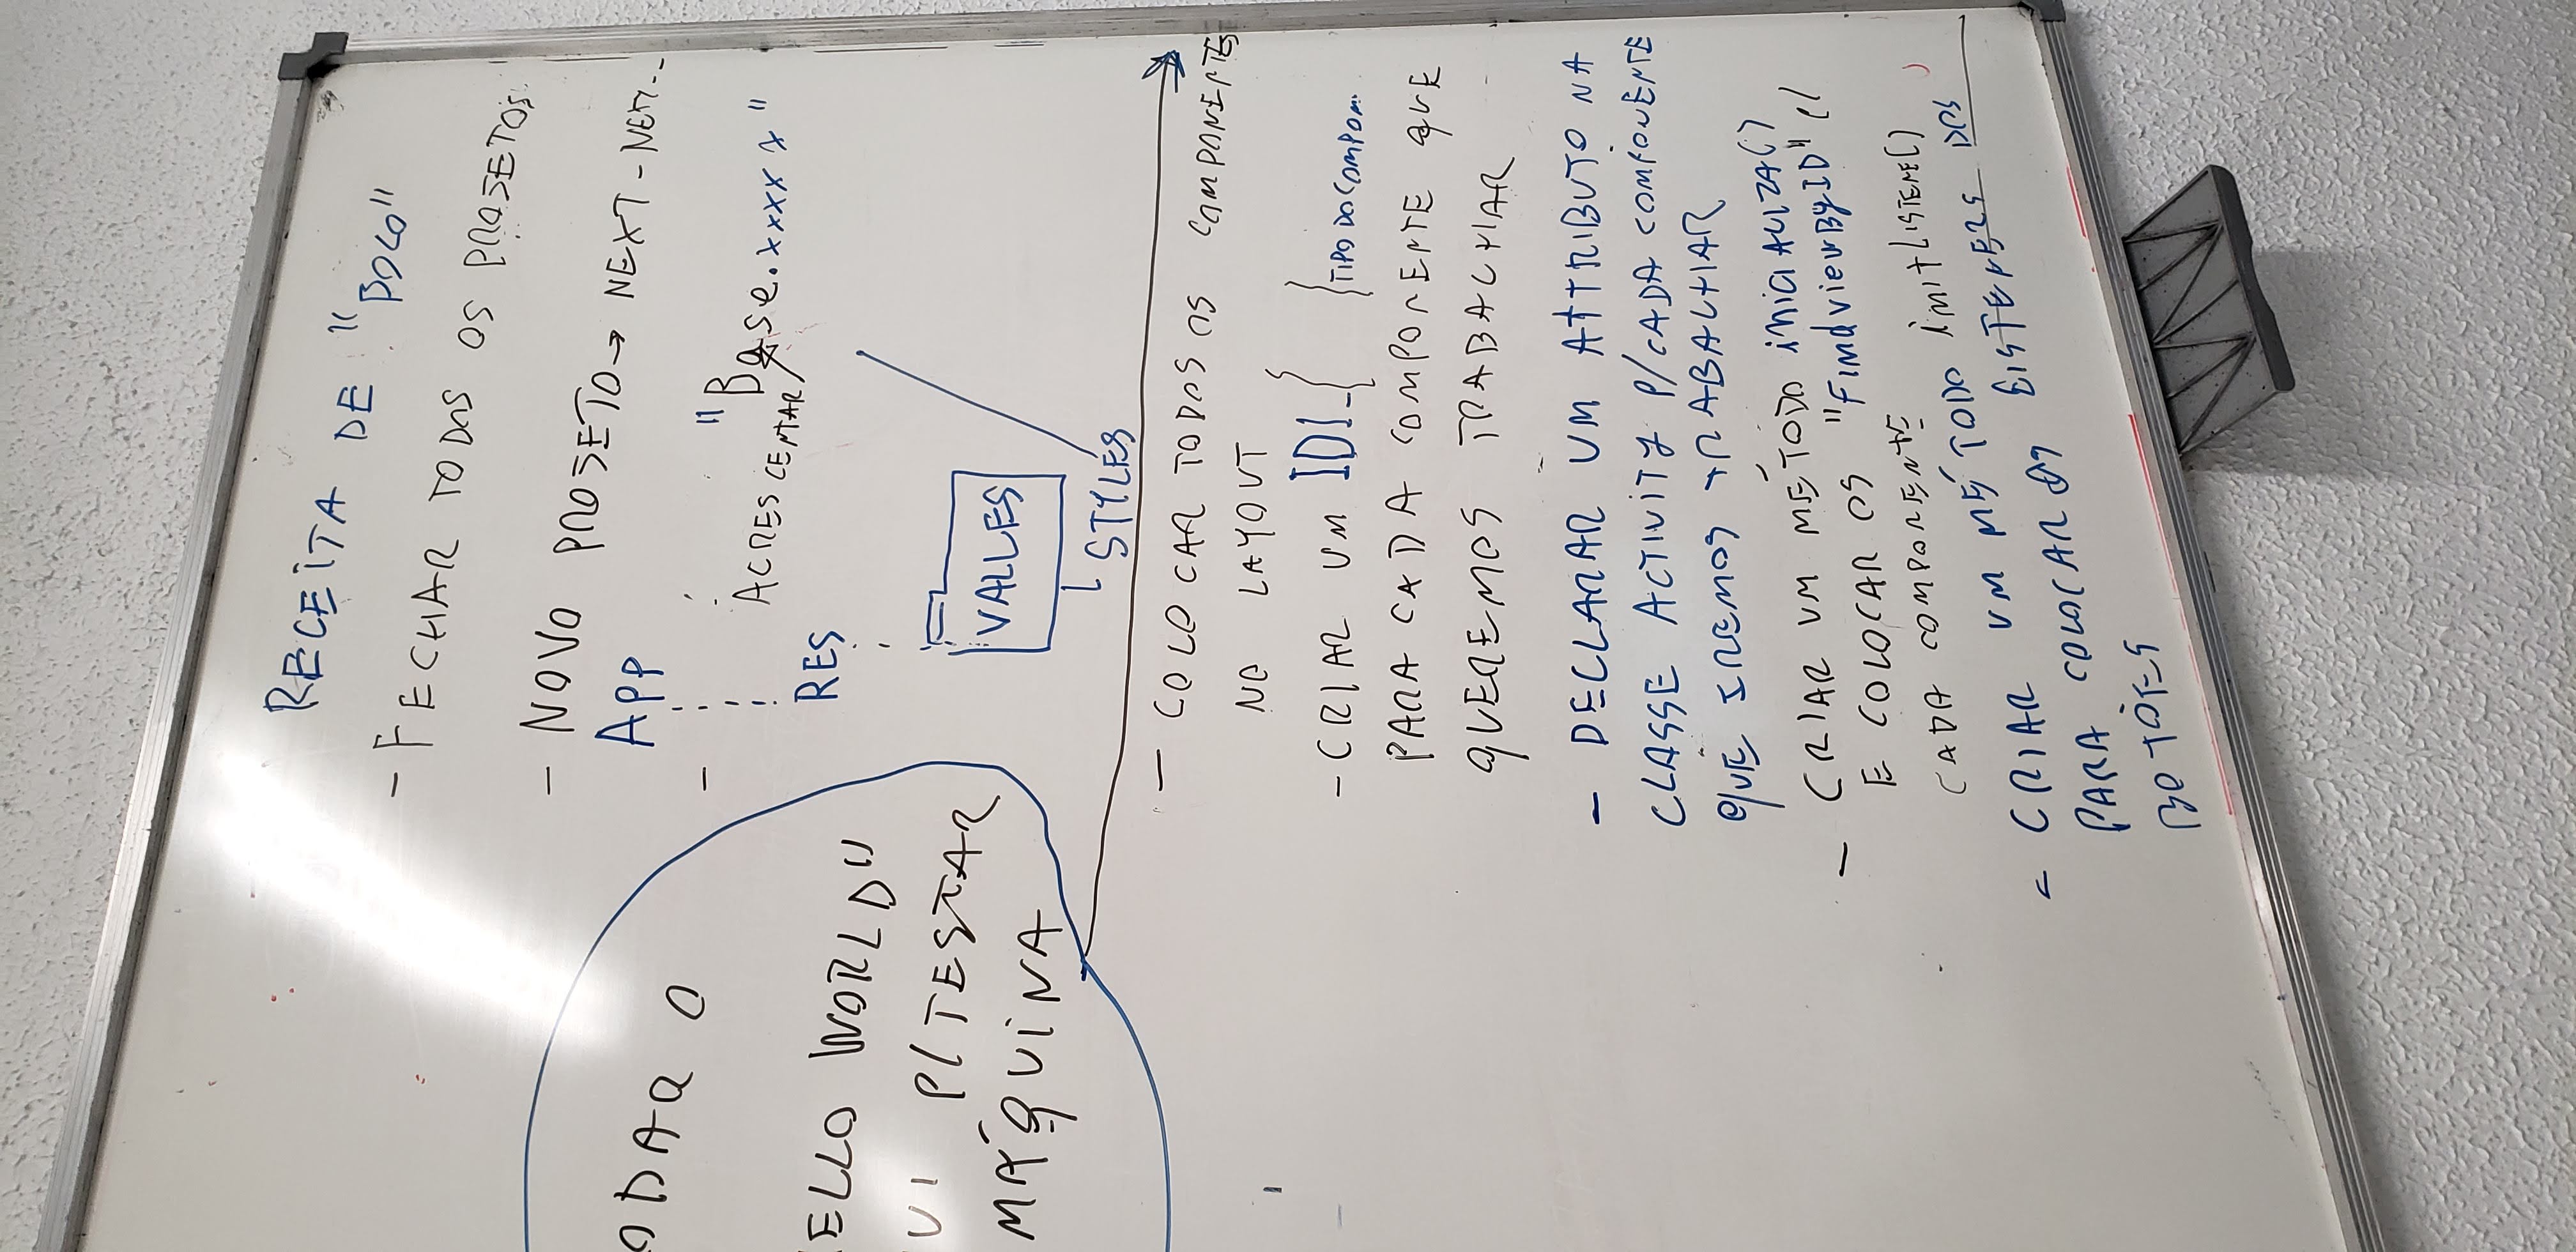 RECEITA DE "BOLO"
- FECHAR TODOS OS PROJETOS
- NOVO PROJETO → NEXT - NEXT..
App
- ACRESCENTAR "Base.xxxxx"
RES
VALUES
STYLES
ODAR O
ELLO WORLD"
UI P/ TESTAR
MÁQUINA
- COLOCAR TODOS OS COMPONENTES
NO LAYOUT
- CRIAR UM ID1_{ } TIPO DO COMPON.
PARA CADA COMPONENTE QUE
QUEREMOS TRABALHAR
- DECLARAR UM ATTRIBUTO NA
CLASSE ACTIVITY P/ CADA COMPONENTE
QUE IREMOS TRABALHAR
- CRIAR UM MÉTODO iniciALIZA()
E COLOCAR OS "FindviewByID" p/
CADA COMPONENTE
- CRIAR UM MÉTODO initLISTENE()
PARA COLOCAR OS LISTENERS DOS
BOTÕES